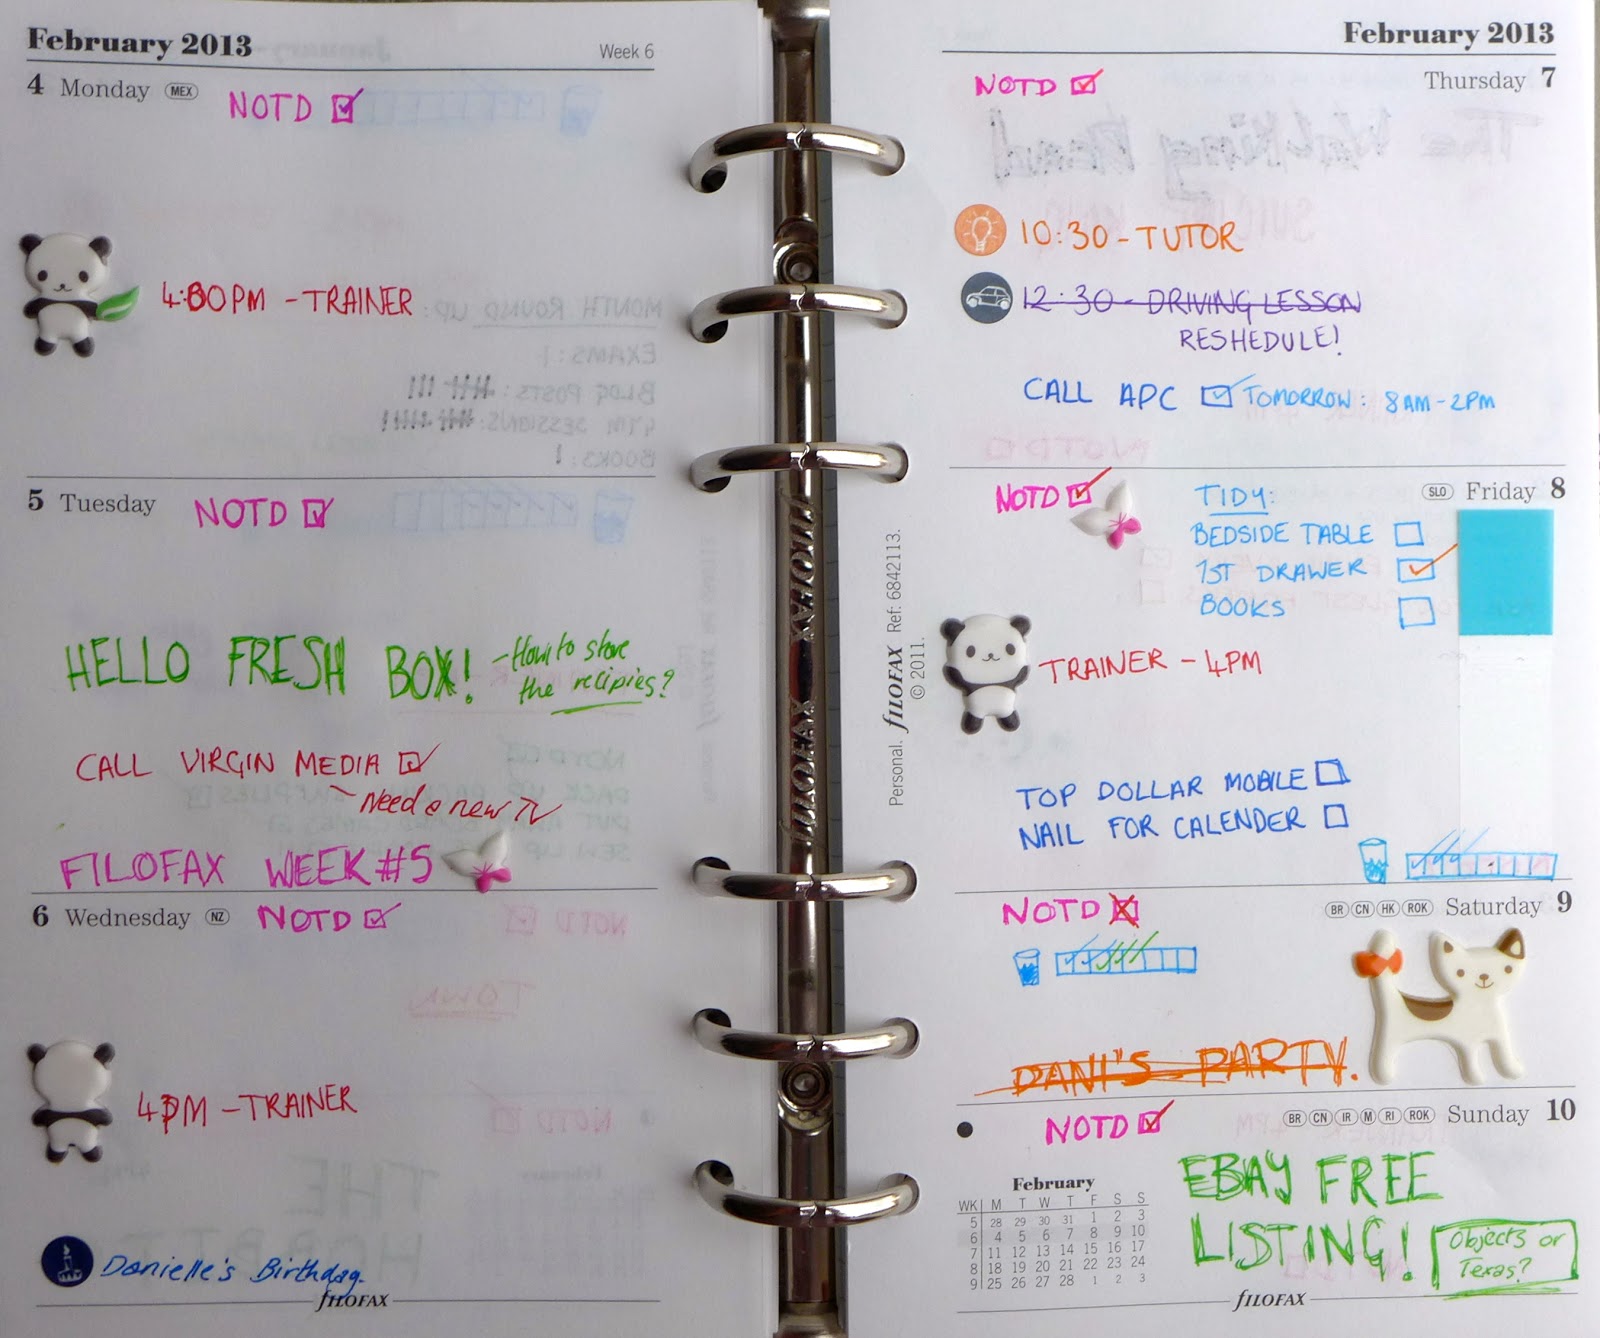 February 2013
Week 6
4 Monday MEX
NOTD
4:00PM - TRAINER
5 Tuesday
NOTD
HELLO FRESH BOX! - How to store
the recipies?
CALL VIRGIN MEDIA
Need a new TV
FILOFAX WEEK #5
6 Wednesday NZ
NOTD
4PM - TRAINER
Danielle's Birthday
fILOFAX
fILOFAX fILOFAX
Personal. fILOFAX Ref: 6842113.
© 2011.
February 2013
Thursday 7
NOTD
10:30 - TUTOR
12:30 - DRIVING LESSON
RESHEDULE!
CALL APC TOMORROW: 8AM - 2PM
SLO Friday 8
NOTD
TIDY:
BEDSIDE TABLE
1ST DRAWER
BOOKS
TRAINER - 4PM
TOP DOLLAR MOBILE
NAIL FOR CALENDER
BR CN HK ROK Saturday 9
NOTD
DANI'S PARTY.
BR CN IR M RI ROK Sunday 10
NOTD
EBAY FREE
LISTING!
Objects or
Texas?
February
WK M T W T F S S
5 28 29 30 31 1 2 3
6 4 5 6 7 8 9 10
7 11 12 13 14 15 16 17
8 18 19 20 21 22 23 24
9 25 26 27 28 1 2 3
fILOFAX